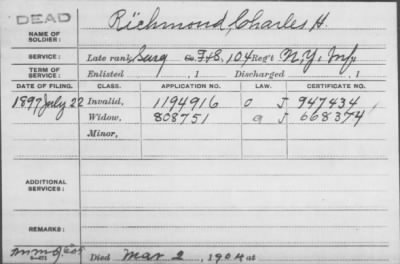 DEAD
NAME OF SOLDIER: Richmond, Charles H.
SERVICE: Late rank, Surg Co. F&S, 104 Reg't N.Y. Inf.
TERM OF SERVICE: Enlisted , 1 Discharged , 1
DATE OF FILING. CLASS. APPLICATION NO. LAW. CERTIFICATE NO.
1897 July 22 Invalid, 1194916 O J 947434
Widow, 808751 a J 668374
Minor,
ADDITIONAL SERVICES:
REMARKS:
Died Mar 2, 1904 at